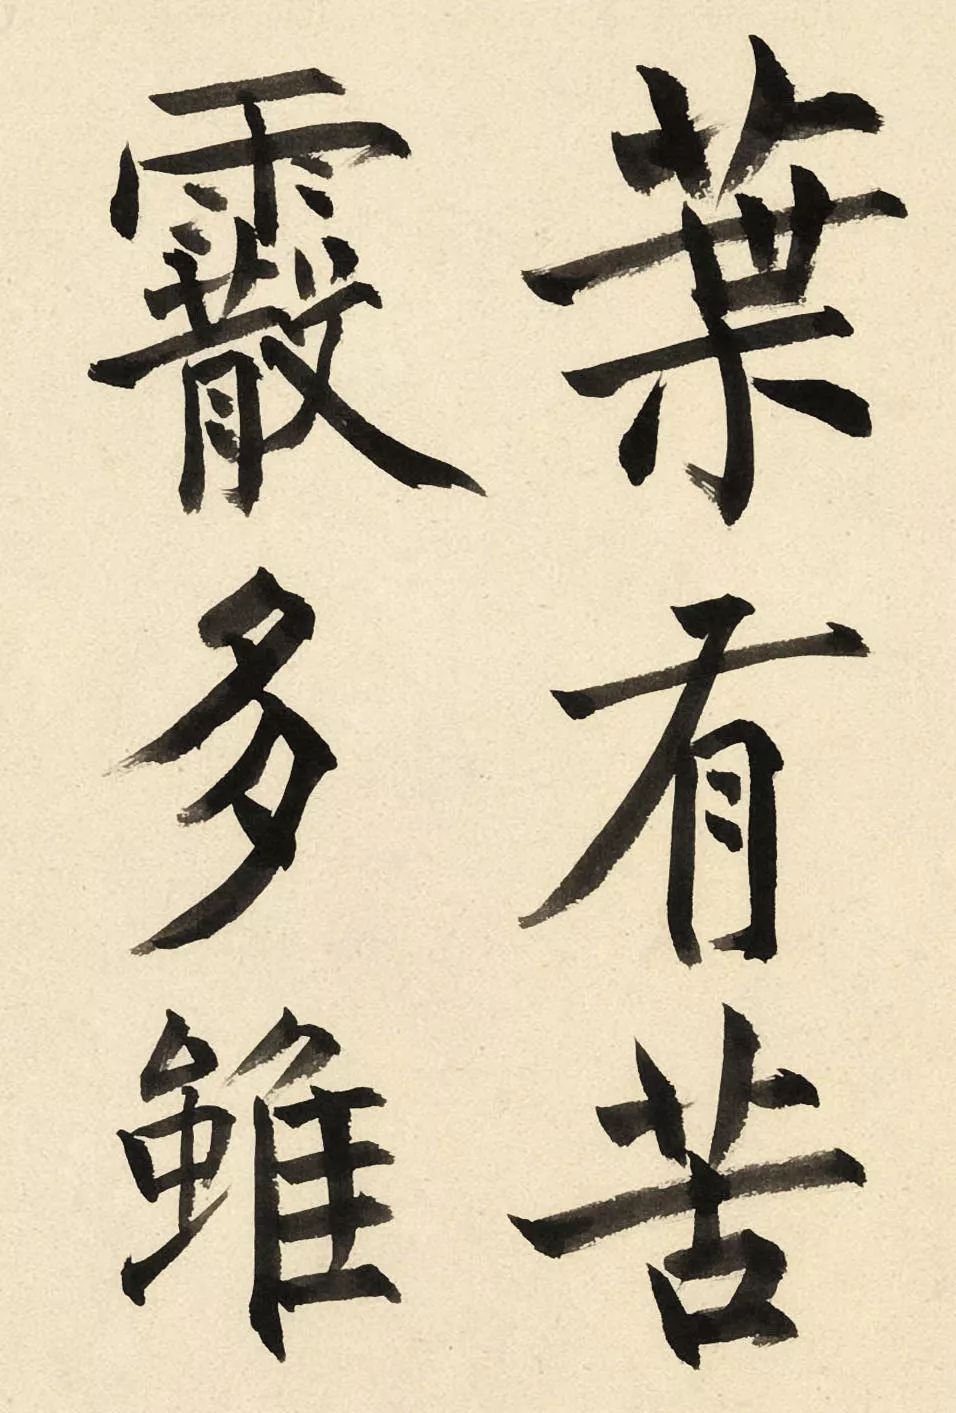 葉有苦
霰多雖